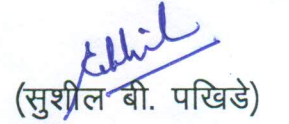 (सुशील बी. पखिडे)